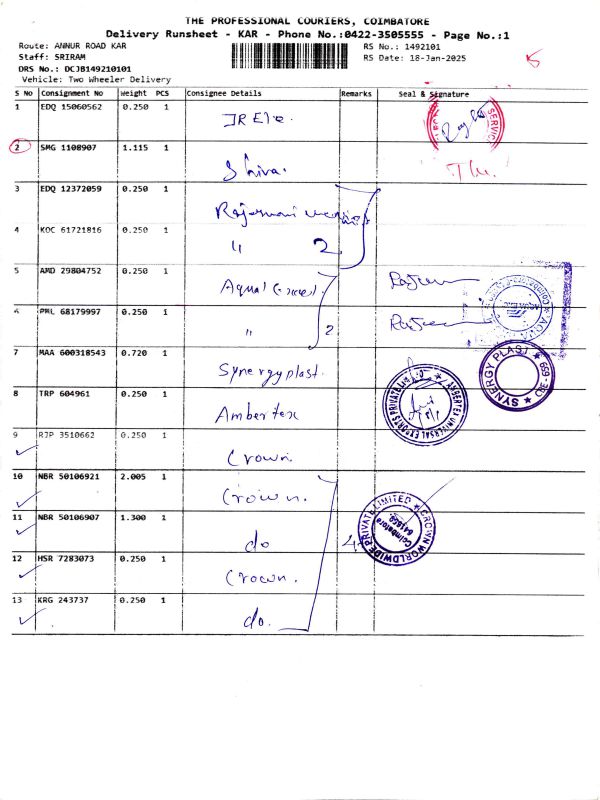 THE PROFESSIONAL COURIERS, COIMBATORE
Delivery Runsheet - KAR - Phone No.:0422-3505555 - Page No.:1
Route: ANNUR ROAD KAR RS No.: 1492101
Staff: SRIRAM RS Date: 18-Jan-2025
DRS No.: DCJB149210101
Vehicle: Two Wheeler Delivery
S No Consignment No Weight PCS Consignee Details Remarks Seal & Signature
1 EDQ 15060562 0.250 1
2 SMG 1108907 1.115 1 Shiva.
3 EDQ 12372059 0.250 1
4 KOC 61721816 0.250 1 " 2
5 AMD 29804752 0.250 1
6 PML 68179997 0.250 1 " 2
7 MAA 600318543 0.720 1 Synergyplast.
SYNERGY PLAST ★ CBE-659 ★
8 TRP 604961 0.250 1 Ambertex
AMBERTEX UNIVERSAL EXPORTS PRIVATE LIMITED
9 RJP 3510662 0.250 1 Crown
10 NBR 50106921 2.005 1 Crown.
11 NBR 50106907 1.300 1 do 4
CROWN WORLDWIDE PRIVATE LIMITED
Coimbatore
641659
12 HSR 7283073 0.250 1 Crown.
13 KRG 243737 0.250 1 do.